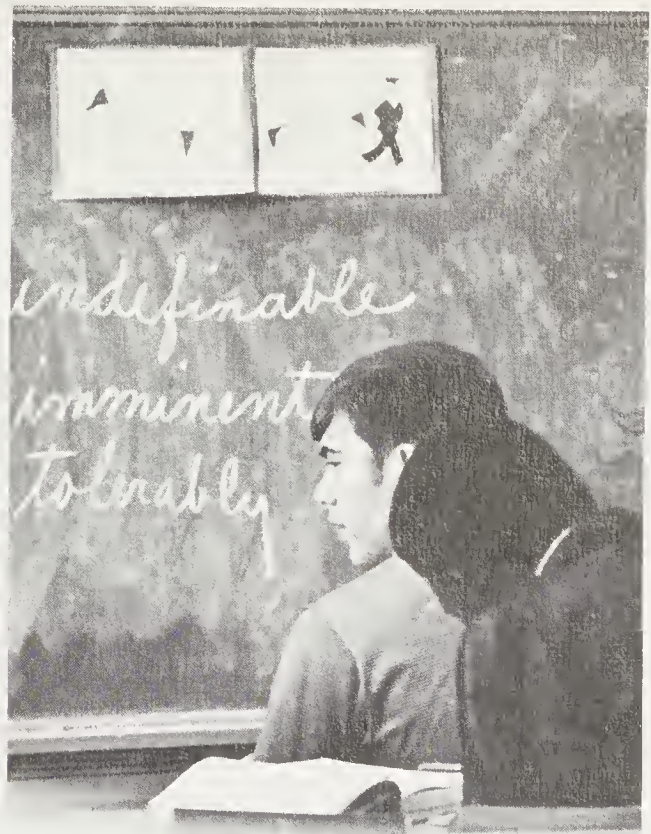 indefinable
imminent
tolerably